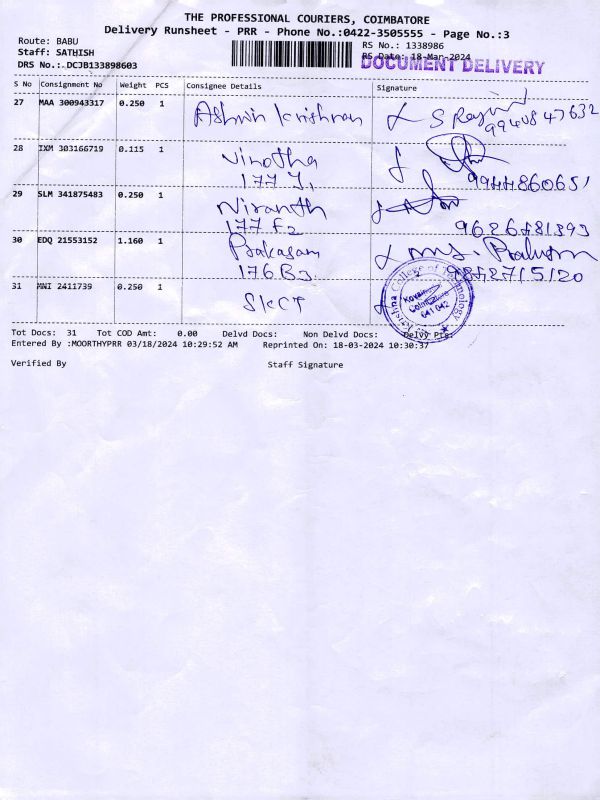 THE PROFESSIONAL COURIERS, COIMBATORE
Delivery Runsheet - PRR - Phone No.:0422-3505555 - Page No.:3
Route: BABU
RS No.: 1338986
Staff: SATHISH
RS Date: 18-Mar-2024
DRS No.: DCJB133898603
DOCUMENT DELIVERY
S No Consignment No Weight PCS Consignee Details Signature
27 MAA 300943317 0.250 1 Ashwin krishnan
28 IXM 303166719 0.115 1 Vinotha
177 J, 9944860651
29 SLM 341875483 0.250 1 Niranth
177 F2 9626481393
30 EDQ 21553152 1.160 1 Prakasam
176 B3 9842715120
31 MNI 2411739 0.250 1 SKCT
Krishna College of Technology
Coimbatore
641 042
Tot Docs: 31 Tot COD Amt: 0.00 Delvd Docs: Non Delvd Docs: Delvy Pts:
Entered By :MOORTHYPRR 03/18/2024 10:29:52 AM Reprinted On: 18-03-2024 10:30:37
Verified By Staff Signature